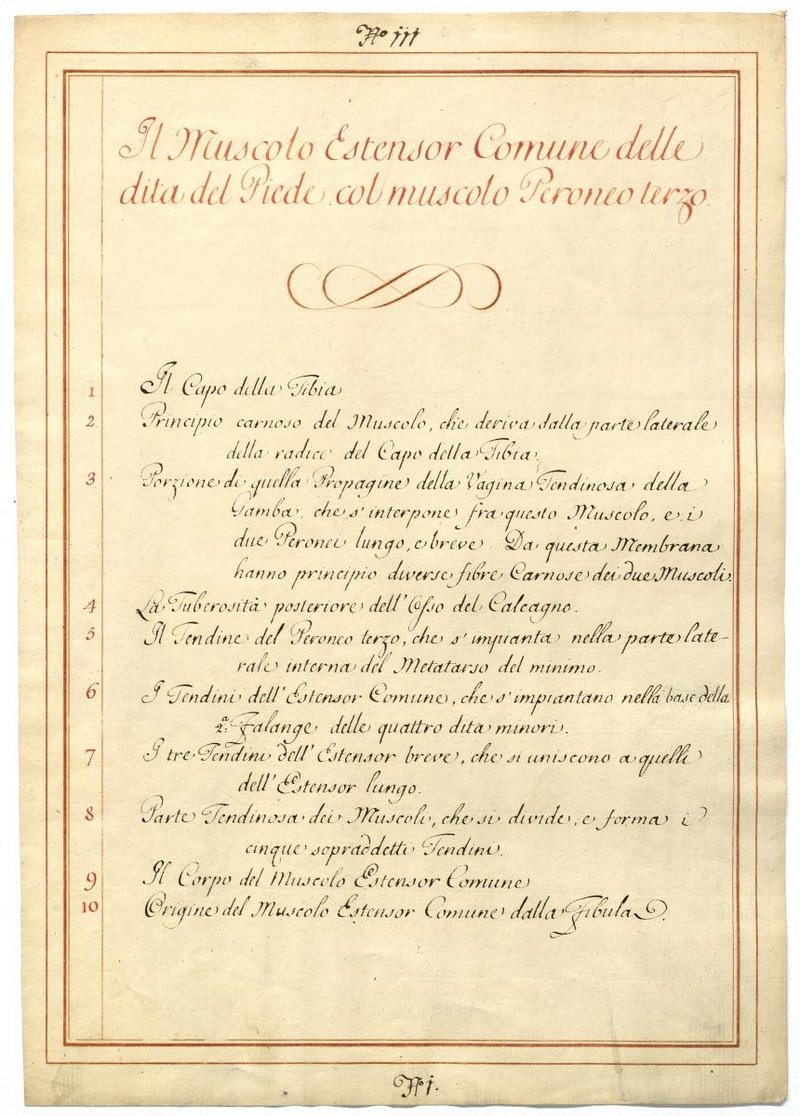 No III
Il Muscolo Estensor Comune delle
dita del Piede col muscolo Peroneo terzo.
1 Il Capo della Tibia
2 Principio carnoso del Muscolo, che deriva dalla parte laterale
della radice del Capo della Tibia.
3 Porzione di quella Propagine della Vagina Tendinosa della
Gamba, che s'interpone fra questo Muscolo, e i
due Peronei lungo, e breve. Da questa Membrana
hanno principio diverse fibre Carnose dei due Muscoli.
4 La Tuberosità posteriore dell'Osso del Calcagno.
5 Il Tendine del Peroneo terzo, che s'impianta nella parte late-
rale interna del Metatarso del minimo.
6 I Tendini dell'Estensor Comune, che s'impiantano nella base della
2a. Falange delle quattro dita minori.
7 I tre Tendini dell'Estensor breve, che si uniscono a quelli
dell'Estensor lungo.
8 Parte Tendinosa dei Muscoli, che si divide, e forma i
cinque sopraddetti Tendini.
9 Il Corpo del Muscolo Estensor Comune
10 Origine del Muscolo Estensor Comune dalla Fibula.
N I.